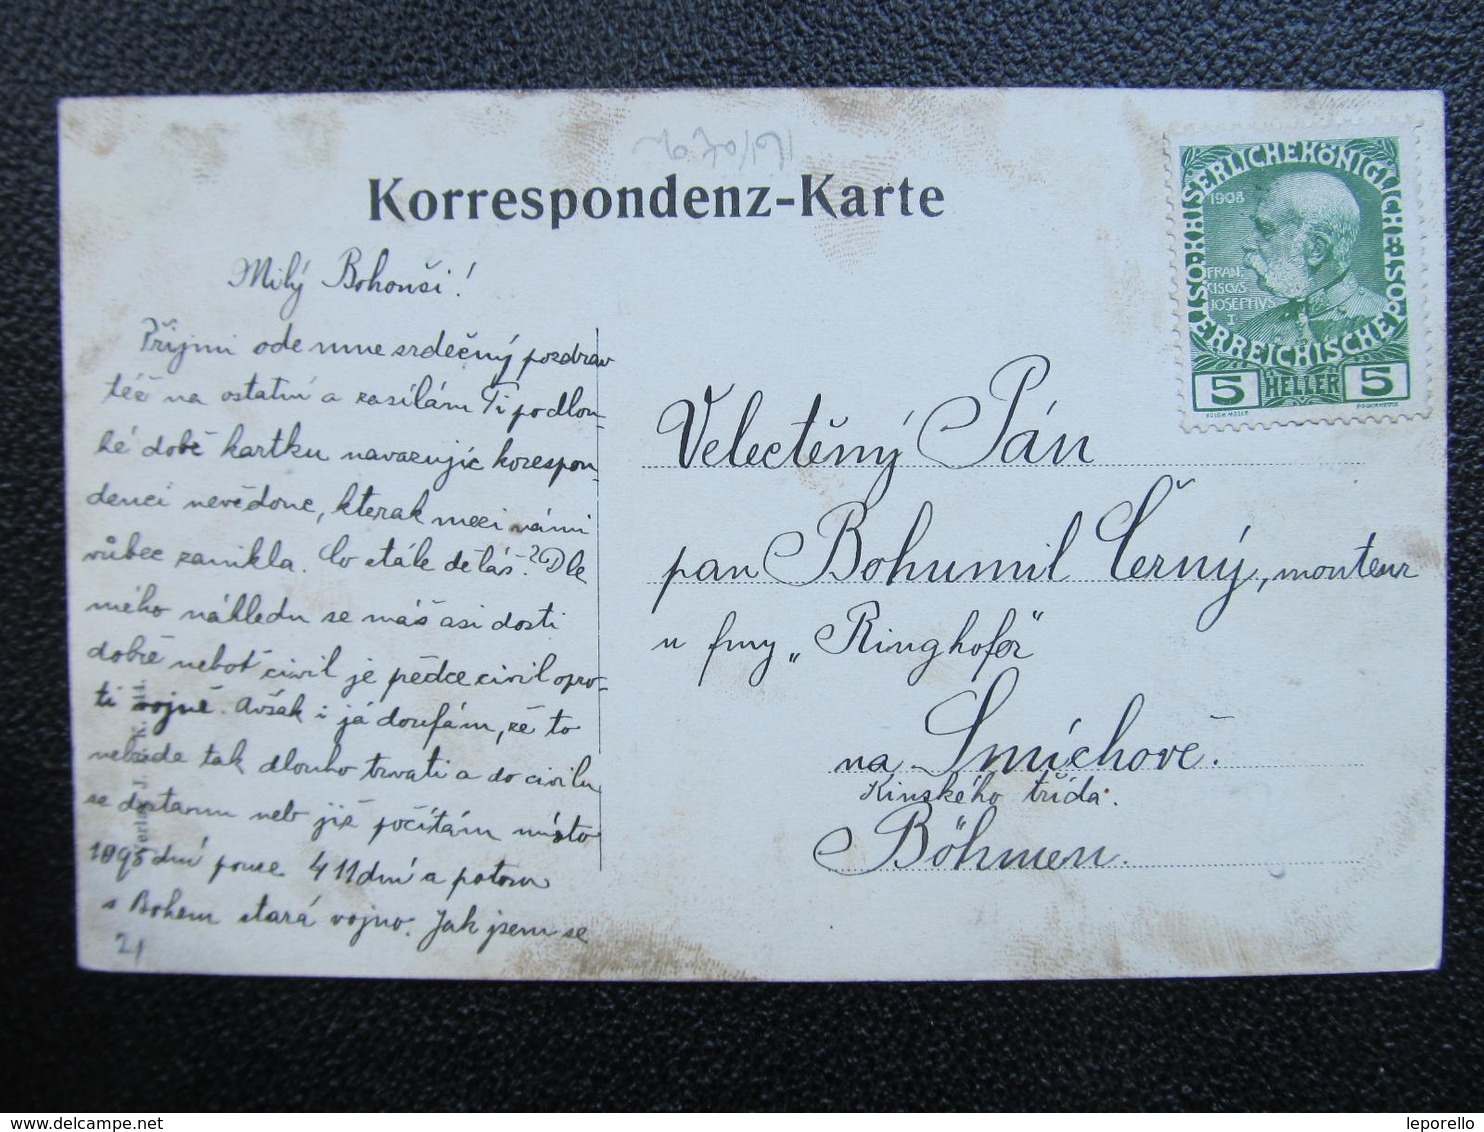 Korrespondenz-Karte
Milý Bohouši!
Přijmi ode mne srdečný pozdrav
též na ostatní a zasílám Ti po dlou-
hé době kartku navazujíc korespon-
denci nevědouc, kterak mezi námi
vůbec zanikla. Co stále děláš? Dle
mého náhledu se máš asi dosti
dobře neboť civil je přece civil opro-
ti vojně. Avšak i já doufám, že to
nebude tak dlouho trvati a do civilu
se dostanu neb již počítám místo
1095 dní pouze 411 dní a potom
s Bohem stará vojno. Jak jsem se
21
Velectěný Pán
pan Bohumil Černý, monteur
u fmy „Ringhofer"
na Smíchově.
Kinského třída.
Böhmen.
KAISERLICHE KÖNIGLICHE ÖSTERREICHISCHE POST
1908
FRAN-
CISCVS
JOSEPHVS
I
5 HELLER 5
KOLOM. MOSER
Verlag J. K.
delcampe.net
leporello